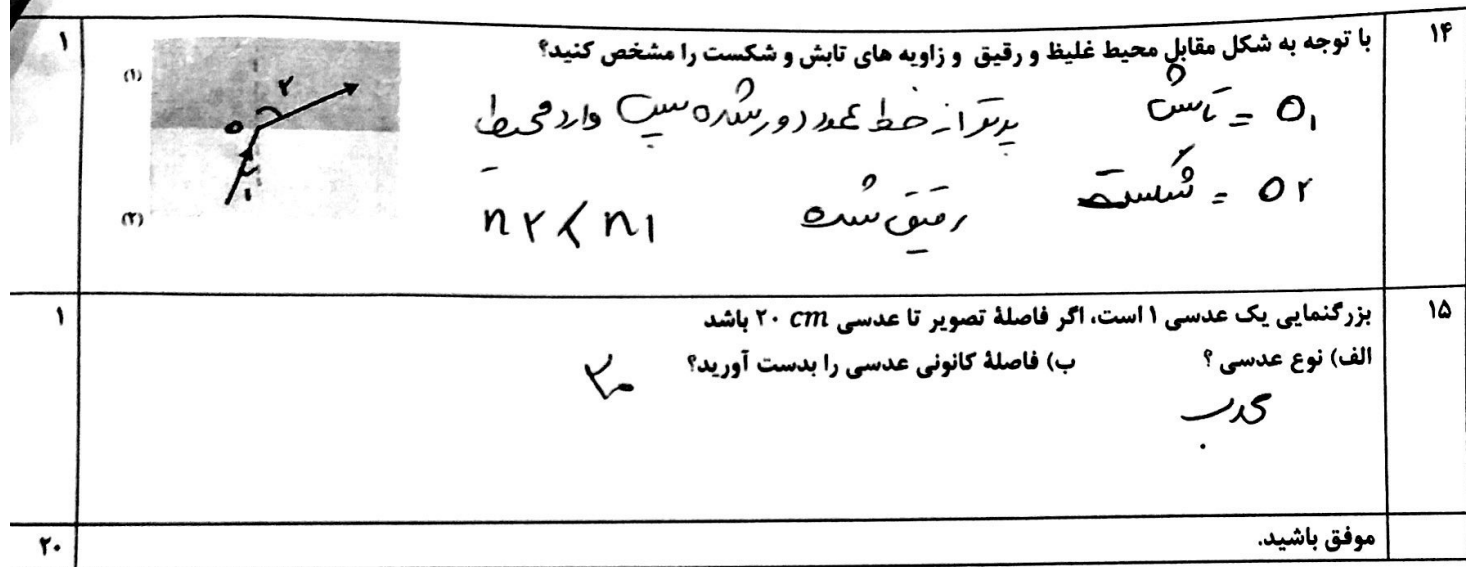 ۱۴
با توجه به شکل مقابل محیط غلیظ و رقیق و زاویه های تابش و شکست را مشخص کنید؟
۱
(۱)
۲
o
۱
(۲)
O۱ = تابش
پرتو از خط عمود دور شده سپس وارد محیط
O۲ = شکست
رقیق شده
n۲ < n۱
۱۵
بزرگنمایی یک عدسی ۱ است، اگر فاصلهٔ تصویر تا عدسی ۲۰ cm باشد
۱
الف) نوع عدسی ؟ ب) فاصلهٔ کانونی عدسی را بدست آورید؟
محدب
موفق باشید.
۲۰